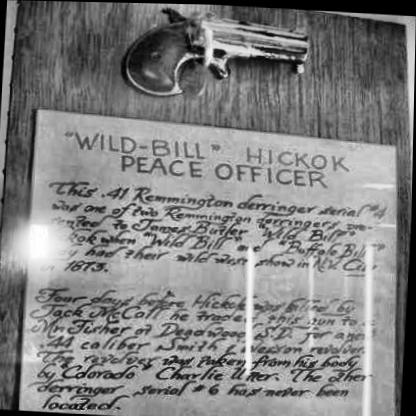 "WILD-BILL" HICKOK
PEACE OFFICER
This .41 Remmington derringer serial #4
was one of two Remmington derringers pre-
sented to James Butler "Wild Bill"
kok when "Wild Bill" and "Buffalo Bill"
y had their wild west show in N.Y. City
in 1873.
Four days before Hickok was killed by
Jack McCall he traded this gun to a
Mr. Fisher of Deadwood S.D. for a new
.44 caliber Smith & Wesson revolver.
The revolver was taken from his body
by "Colorado" Charlie Utter. The other
derringer serial #6 has never been
located.